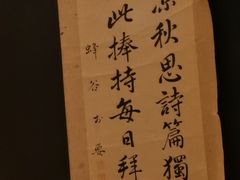 秋思詩篇獨
此捧持每日拜
蜂谷